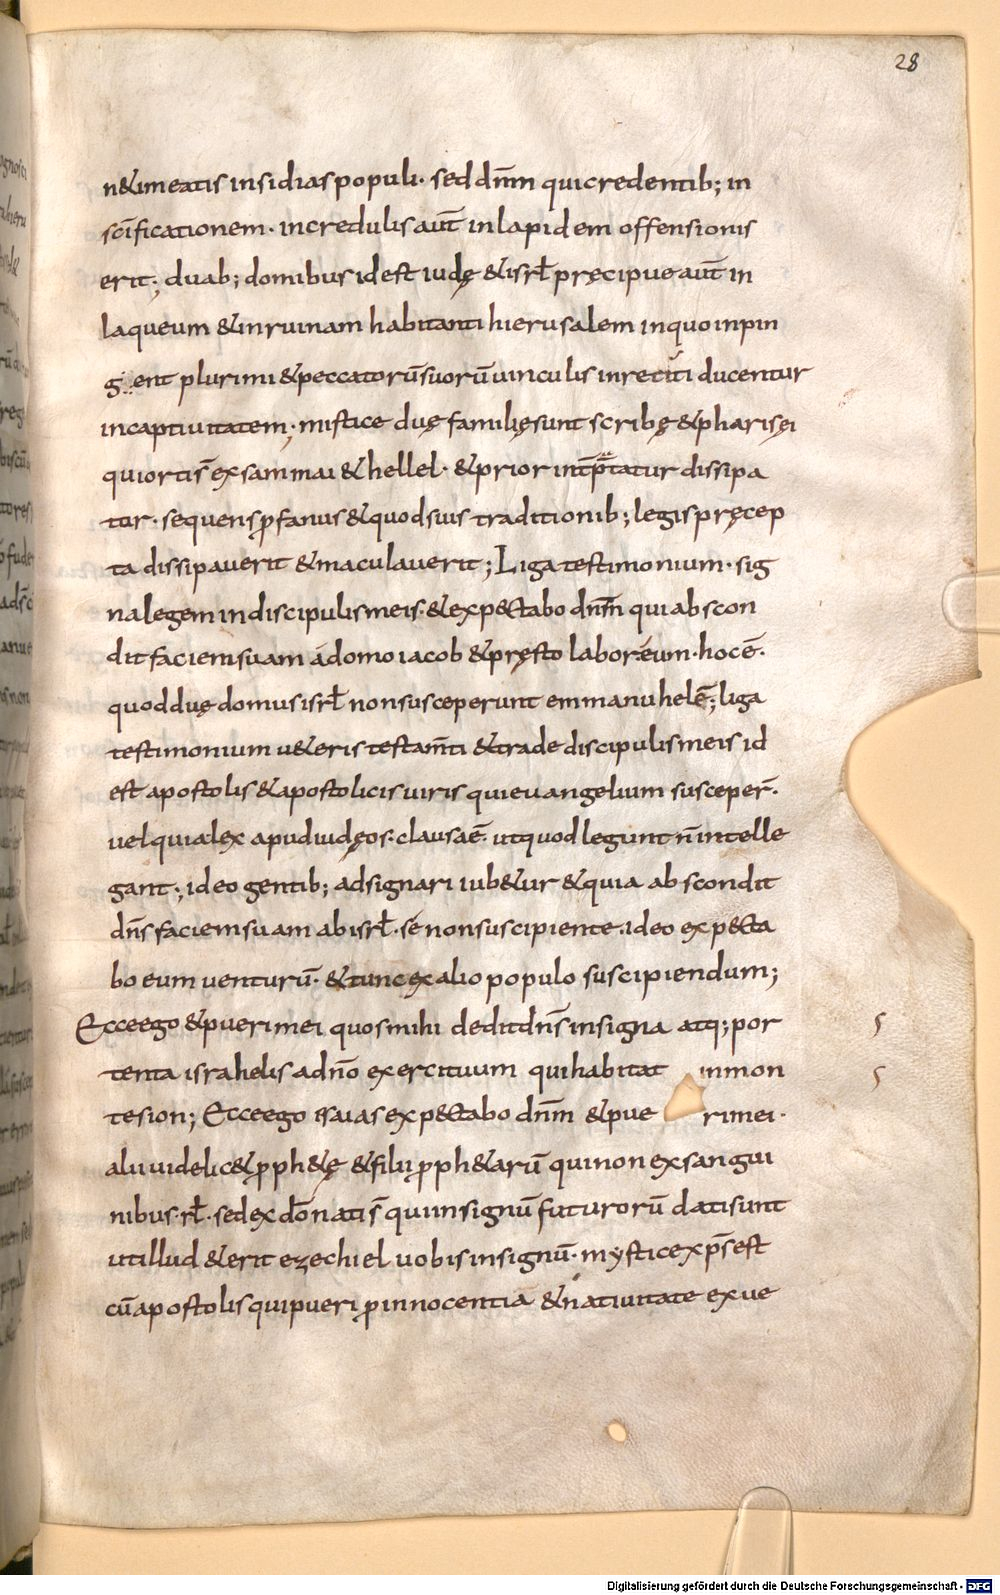 28
n&imeatis insidias populi· sed dnm̄ qui credentib; in
sc̄ificationem· incredulis aut̄ in lapidem offensionis
erit; duab; domibus id est iudę & isrł pręcipue aut̄ in
laqueum & in ruinam habitanti hierusalem in quo inpin
gent plurimi & peccatorū suorū uinculis inretiti ducentur
in captiuitatem; mistice duę familię sunt scribę & pharisęi
qui orti s̄ ex sammai & hellel· & prior int̄p̄tatur dissipa
tur· sequens ꝓfanus & quod suis traditionib; legis pręcep
ta dissipauerit & maculauerit; Liga testimonium· sig
na legem in discipulis meis· & exp&tabo dnm̄ qui abscon
dit faciem suam a domo iacob & pręstolabor eum· hoc ē·
quod duę domus isrł non susceperunt emmanuhelē; liga
testimonium u&eris testam̄ti & trade discipulis meis id
est apostolis & apostolicis uiris qui euangelium susceper̄·
uel quia lex apud iudęos· clausa ē· ut quod legunt n̄ intelle
gant; ideo gentib; adsignari iub&ur & quia abscondit
dn̄s faciem suam ab isrł· se non suscipiente· ideo exp&ta
bo eum uenturū· & tunc ex alio populo suscipiendum;
Ecce ego & pueri mei quos mihi dedit dn̄s in signa atq; por
tenta israhelis a dn̄o exercituum qui habitat in mon
te sion; Ecce ego isaias exp&tabo dnm̄ & pue ri mei·
alii uidelic& ꝓph&ę & filii ꝓph&arū qui non ex sangui
nibus· rł· sed ex dō nati s̄ qui in signū futurorū dati sunt
ut illud & erit ezechiel uobis in signū· mystice xp̄s est
cū apostolis qui pueri ꝓ innocentia & natiuitate ex ue
Digitalisierung gefördert durch die Deutsche Forschungsgemeinschaft - DFG